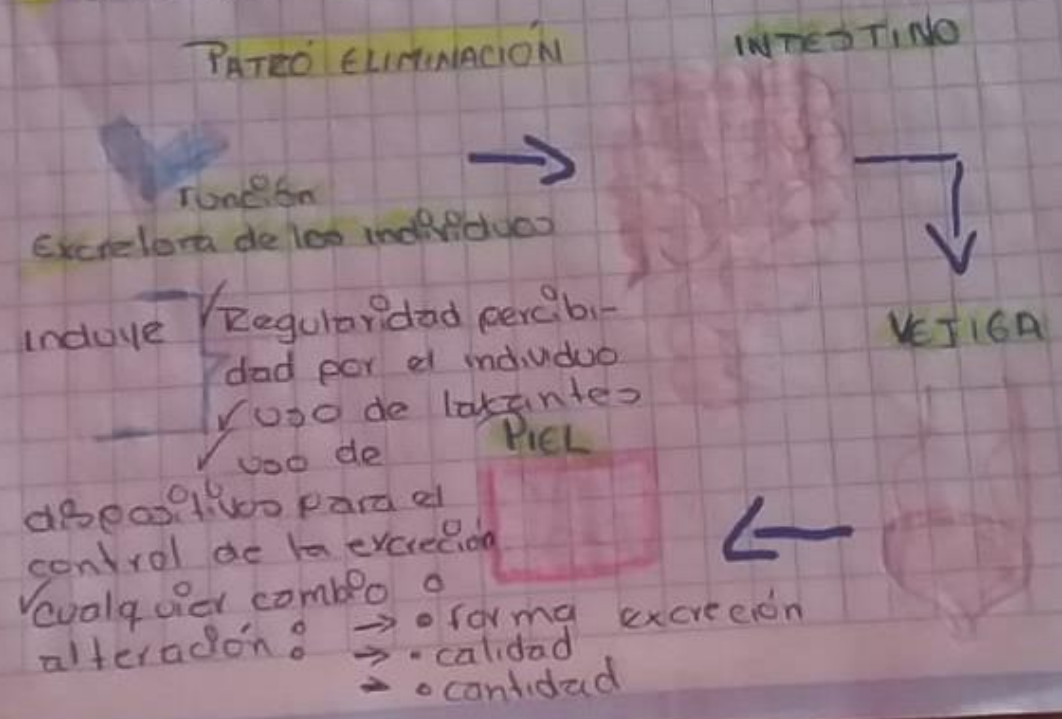 PATRÓ ELIMINACIÓN
INTESTINO
Función
Excretora de los individuos
incluye
Regularidad percibi-
dad por el individuo
uso de laxantes
PIEL
uso de
dispositivos para el
control de la excreción
cualquier cambio o
alteración: → • forma excreción
→ • calidad
→ • cantidad
VEJIGA